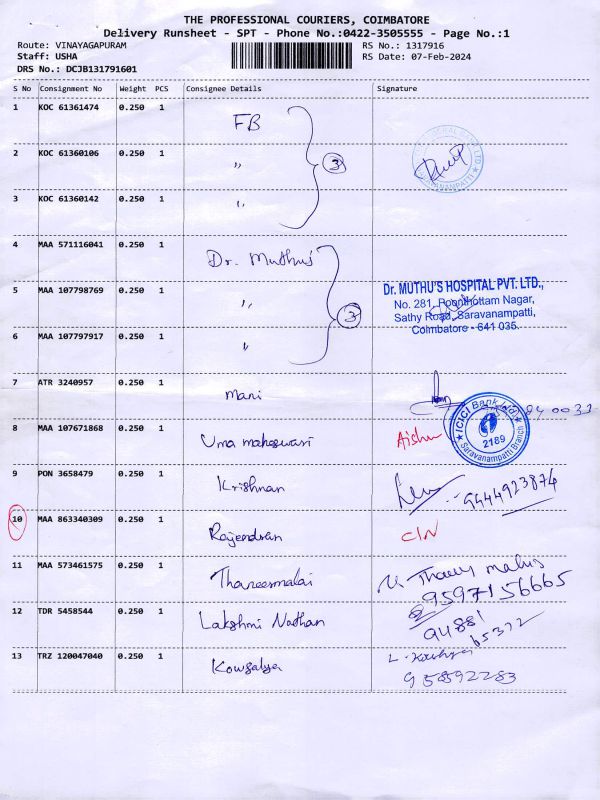 THE PROFESSIONAL COURIERS, COIMBATORE
Delivery Runsheet - SPT - Phone No.:0422-3505555 - Page No.:1
Route: VINAYAGAPURAM
RS No.: 1317916
Staff: USHA
RS Date: 07-Feb-2024
DRS No.: DCJB131791601
S No Consignment No Weight PCS Consignee Details Signature
1 KOC 61361474 0.250 1 FB
2 KOC 61360106 0.250 1 〃 3
SARAVANAMPATTI
3 KOC 61360142 0.250 1 〃
4 MAA 571116041 0.250 1 Dr. Muthus
5 MAA 107798769 0.250 1 〃 3
Dr. MUTHU'S HOSPITAL PVT. LTD.,
No. 281, Poonthottam Nagar,
Sathy Road, Saravanampatti,
Coimbatore - 641 035.
6 MAA 107797917 0.250 1 〃
7 ATR 3240957 0.250 1 Mani
8 MAA 107671868 0.250 1 Uma maheswari Aishu
ICICI Bank Ltd.
2169
Saravanampatti Branch
9 PON 3658479 0.250 1 Krishnan 9444923874
10 MAA 863340309 0.250 1 Rajendran
11 MAA 573461575 0.250 1 Thaneermalai
9597156665
12 TDR 5458544 0.250 1 Lakshmi Nathan
94881
65372
13 TRZ 120047040 0.250 1 Kowsalya